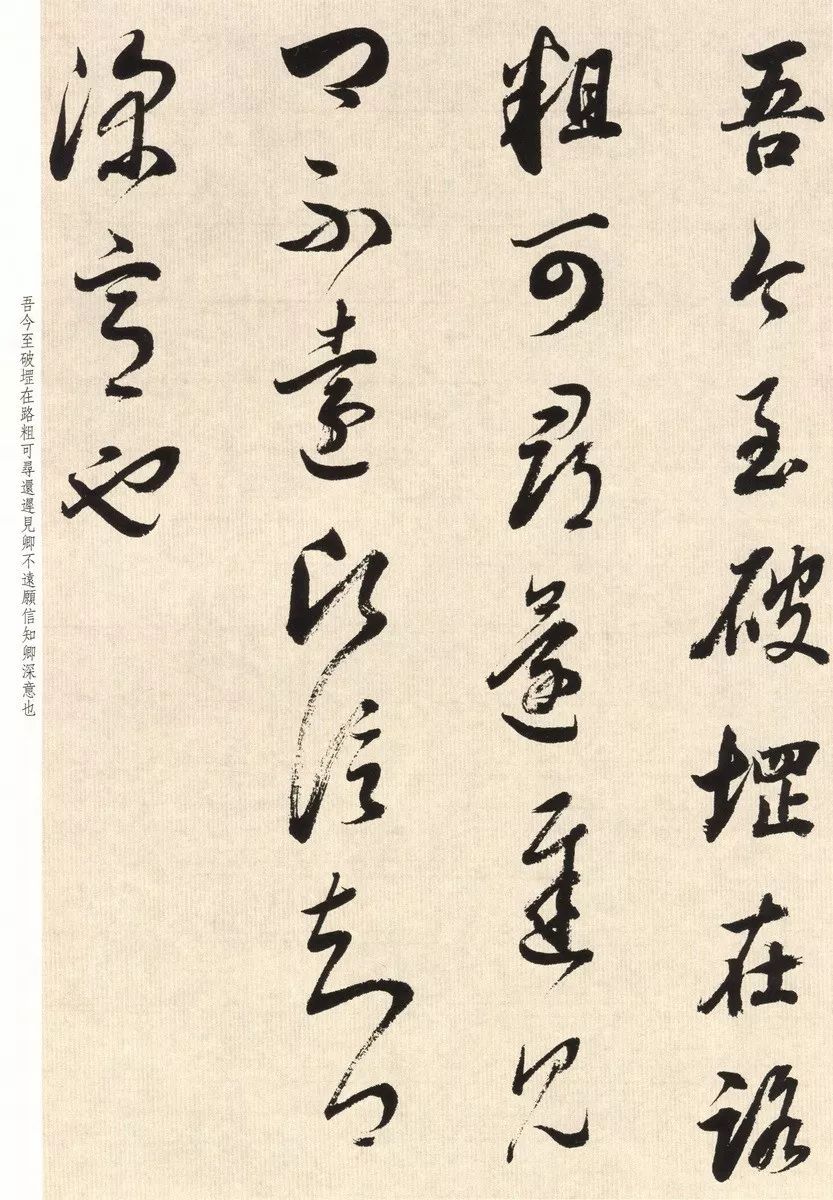 吾今至破堽在路
粗可尋還遲見
卿不遠願信知卿
深意也
吾今至破堽在路粗可尋還遲見卿不遠願信知卿深意也